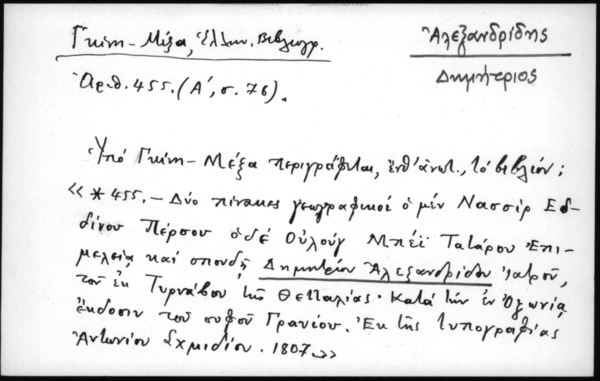 Γκίνη - Μέξα, Ἑλλην. Βιβλιογρ.
Ἀλεξανδρίδης
Δημήτριος
Ἀριθ. 455. (Α΄, σ. 76).
Ὑπό Γκίνη - Μέξα περιγράφεται, ἔνθ' ἀνωτ., τό βιβλίον;
«*455. - Δύο πίνακες γεωγραφικοί ὁ μέν Νασσίρ Εδ-
δίνου Πέρσου ὁ δέ Οὐλούγ Μπέϊ Τατάρου Ἐπι-
μελείᾳ καί σπουδῇ Δημητρίου Ἀλεξανδρίδου ἰατροῦ,
τοῦ ἐκ Τυρνάβου τῆς Θετταλίας. Κατά τήν ἐν Ὀξωνίᾳ
ἔκδοσιν τοῦ σοφοῦ Γραυίου. Ἐκ τῆς τυπογραφίας
Ἀντωνίου Σχμιδίου. 1807»